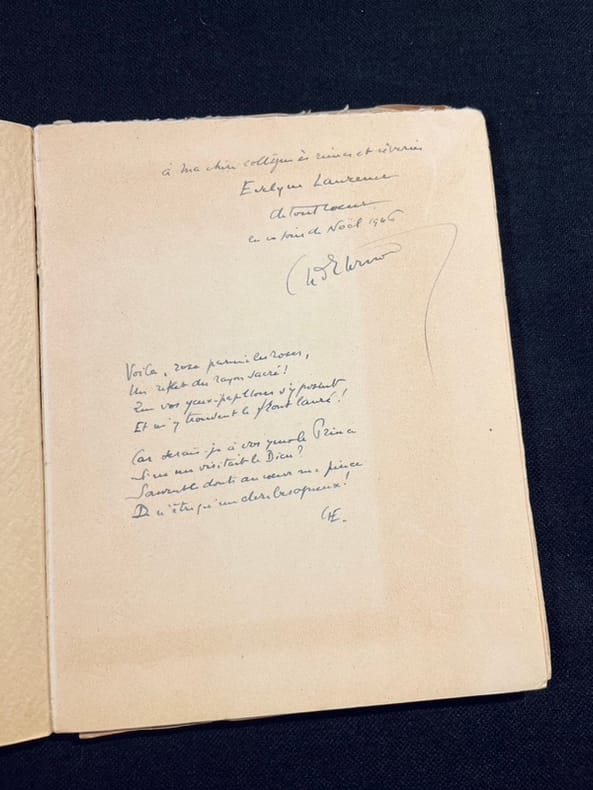 à ma chère collègue ès rimes et rêveries
Evelyne Laurence
de tout cœur
en ce soir de Noël 1946
Voila, rose parmi les roses,
Un reflet du rayon sacré!
Que vos yeux-papillons s'y posent
Et m'y trouvent le front lauré!
Car serais-je à vos yeux le Prince
Si ne me visitait le Dieu?
Souvent le doute au cœur me pince
De n'être qu'un clerc besogneux!